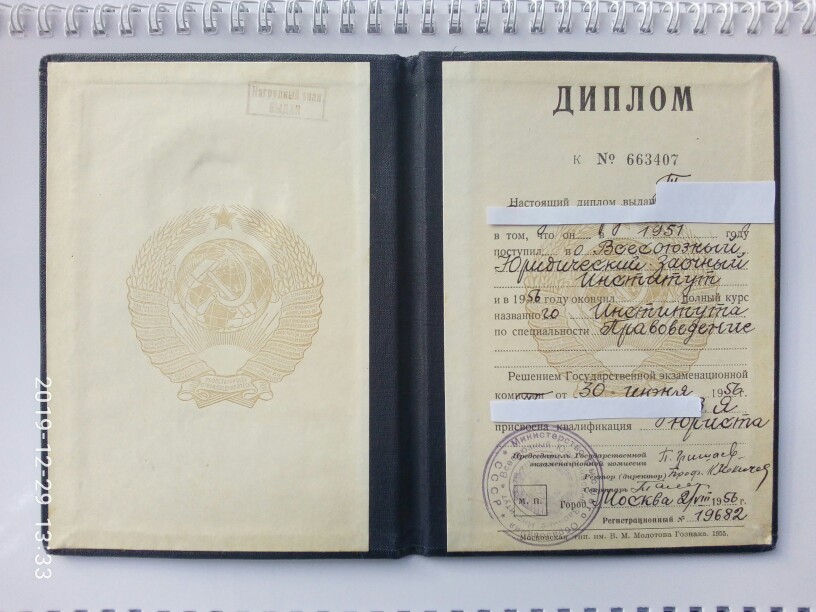 Нагрудный знак
ВЫДАН
ДИПЛОМ
К № 663407
Настоящий диплом выдан
в том, что он в 1951 году
поступил в Всесоюзный
Юридический Заочный
Институт
и в 1956 году окончил полный курс
названного Института
по специальности Правоведение
Решением Государственной экзаменационной
комиссии от 30 июня 1956 г.
Я
присвоена квалификация Юриста
Председатель Государственной
экзаменационной комиссии
Ректор (директор) Проф.
Секретарь
М. П.
Город Москва 2/VIII 1956 г.
Регистрационный № 19682
Московская тип. им. В. М. Молотова Гознака. 1955.
Министерство
СССР
2019-12-29 13:33